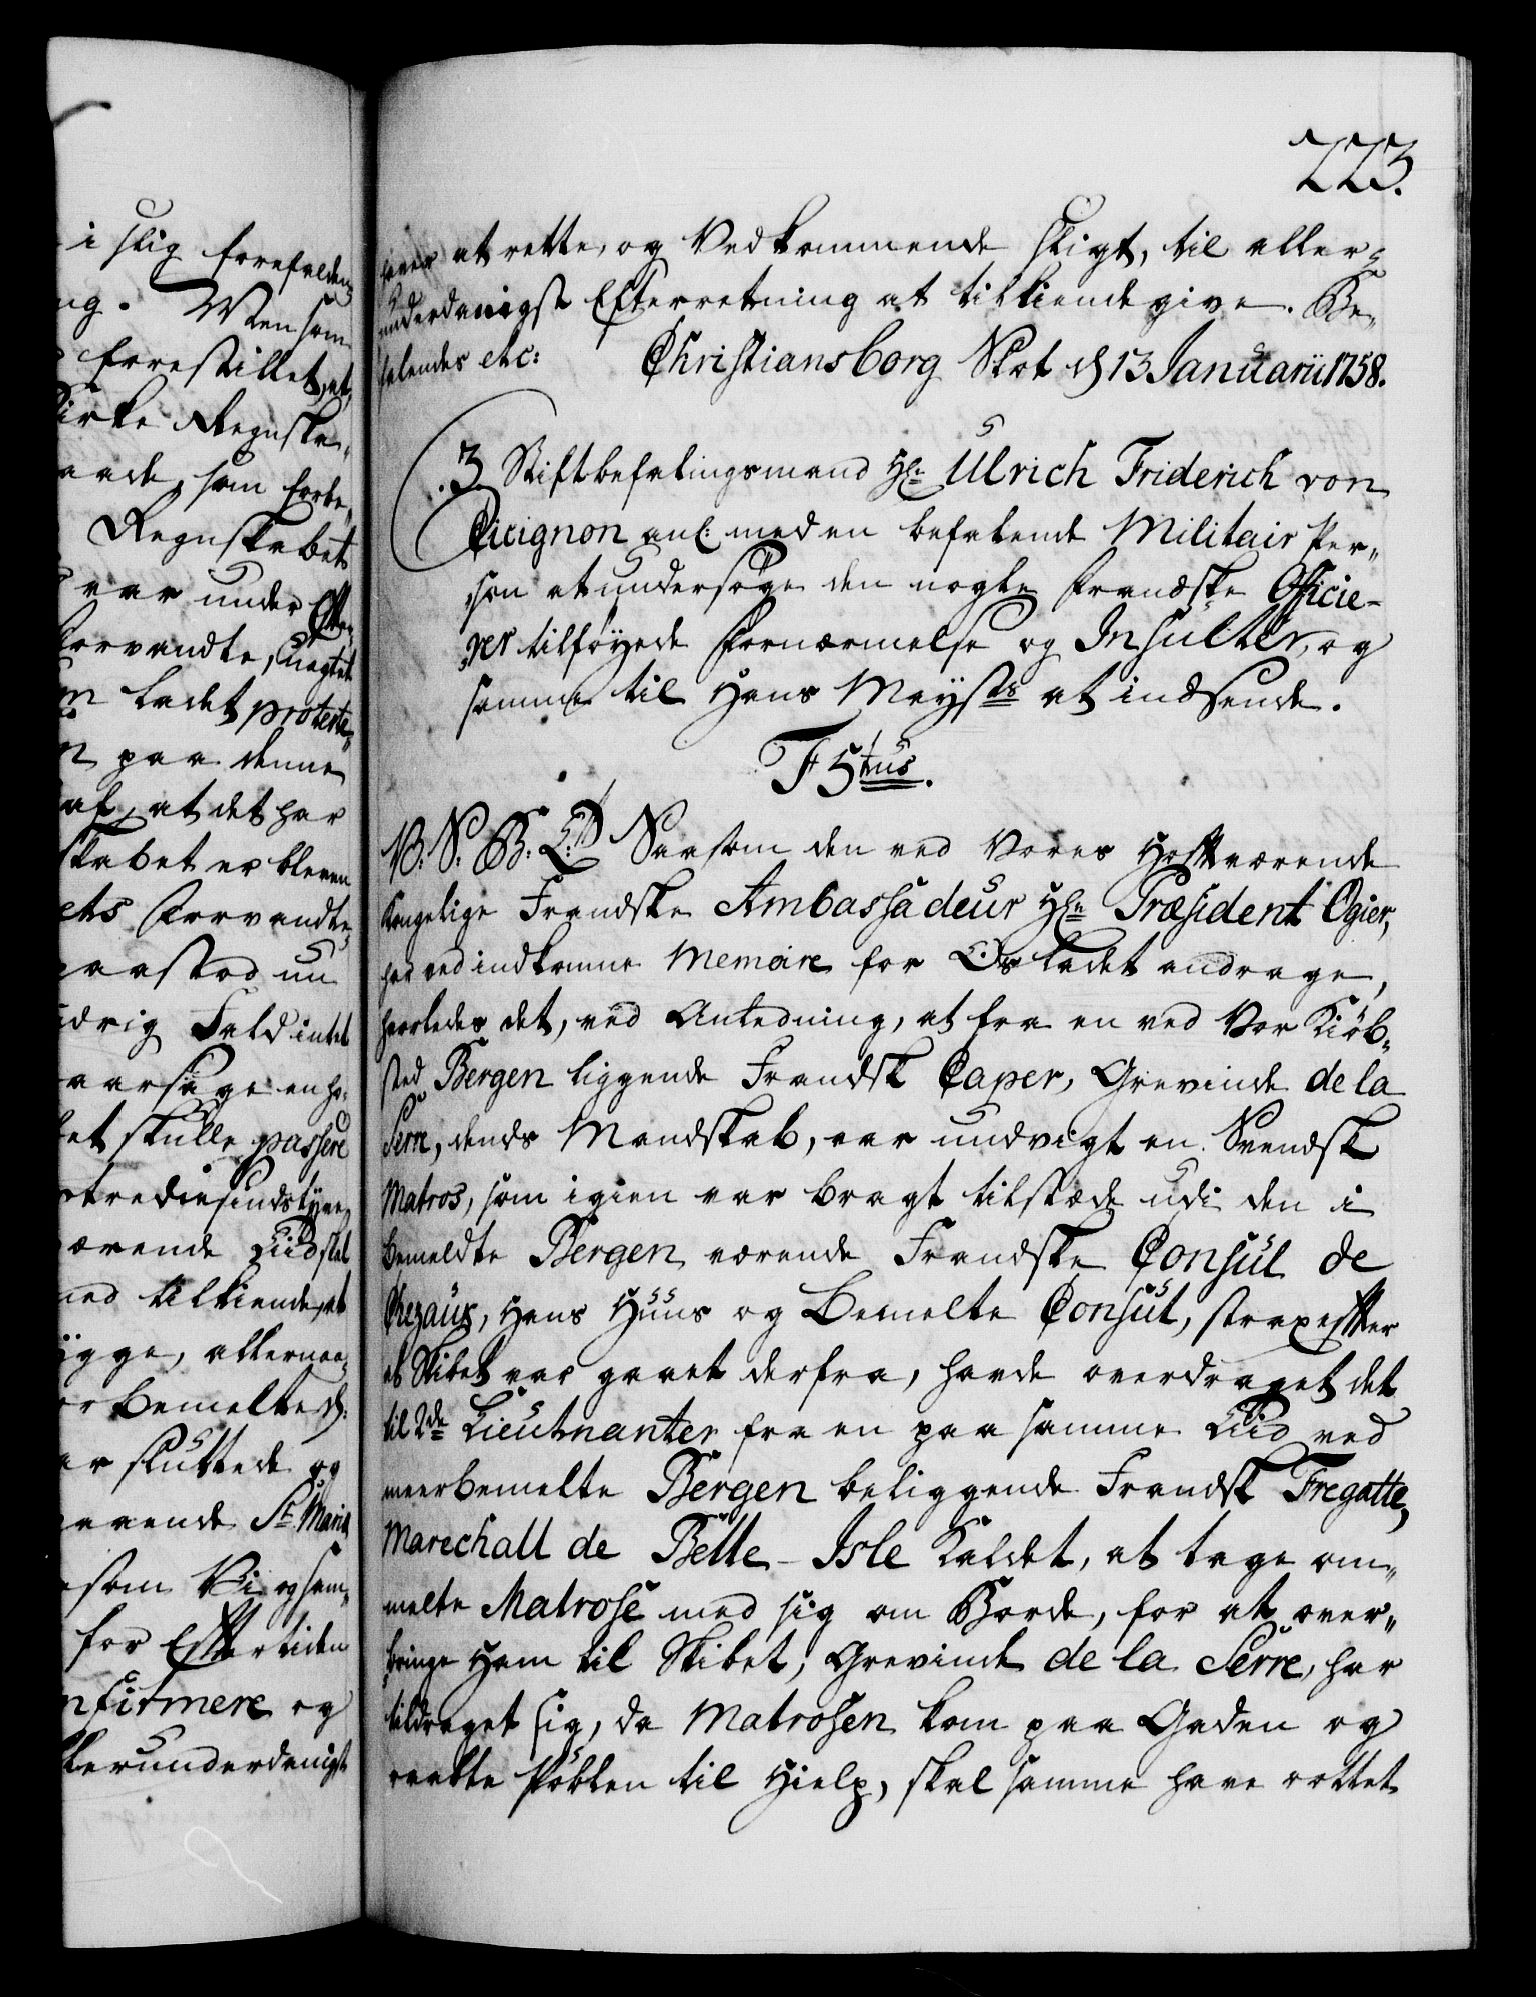 i slig forefalden
ng. Men som
forestillet, at
Kirke Regnska-
aade, som forbe-
Regnskabet
var under Efter-
Forvandte, negtet
ladet proteste-
n paa denne
af, at det har
skabet er bleven
ets Forvandte
paastod un
udrig Fald intet
aarsage en ho-
et skulle passere
otrediesindstyve
værende Tiid skal
med tilkiende, at
ygge, allernaa-
or bemelte
ar sluttede og
værende St Maria
som Vi og saa-
for Eftertiden
nfirmere og
allerunderdanigst
223.
haver at rette, og Vedkommende sligt, til aller-
underdanigst Efterretning at tilkiendegive. Be-
falendes etc: Christiansborg Slot d 13 Januarii 1758.
.3. Stiftbefalingsmand Hr. Ulrich Friderich von
Cicignon anl: med en befalende Militair Per-
son at undersøge den nogle frandske Officie-
rer tilføyede Fornærmelse og Insulter, og
samme til Hans Mayst: at indsende.
F 5tus.
V: S: G: T: Saasom den ved Vores Hof værende
Kongelige Frandske Ambassadeur Hr. Præsident Ogier,
har ved indkomne Memoire for Os ladet andrage,
hvorledes det, ved Anledning, at fra en ved Vor Kiøb-
sted Bergen liggende Frandsk Caper, Grevinde de la
Serre, dends Mandskab, var undvigt en Svendsk
Matros, som igien var bragt tilstæde udi den i
bemeldte Bergen værende Frandske Consul de
Chezaux, Hans Huus og bemelte Consul, strax efter
at Skibet var gaaet derfra, hafde overdraget det
til 2de Lieutnanter fra en paa samme Tiid ved
meerbemelte Bergen beliggende Frandsk Fregatte,
Marechall de Belle-Isle kaldet, at tage om-
melte Matrose med sig om Borde, for at over-
bringe Ham til Skibet, Grevinde de la Serre, har
tildraget sig, da Matrosen kom paa Gaden og
raabte Pøblen til Hielp, skal samme have rottet